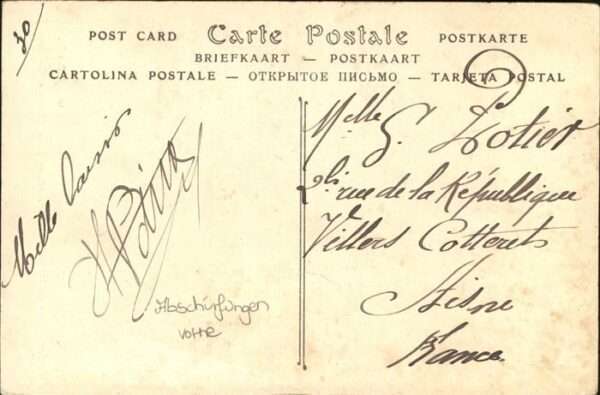 30
POST CARD Carte Postale POSTKARTE
BRIEFKAART — POSTKAART
CARTOLINA POSTALE — ОТКРЫТОЕ ПИСЬМО — TARJETA POSTAL
Mille
Abschürfungen
vorne
Melle G. Lotier
rue de la République
Villers Cotterets
Aisne
France